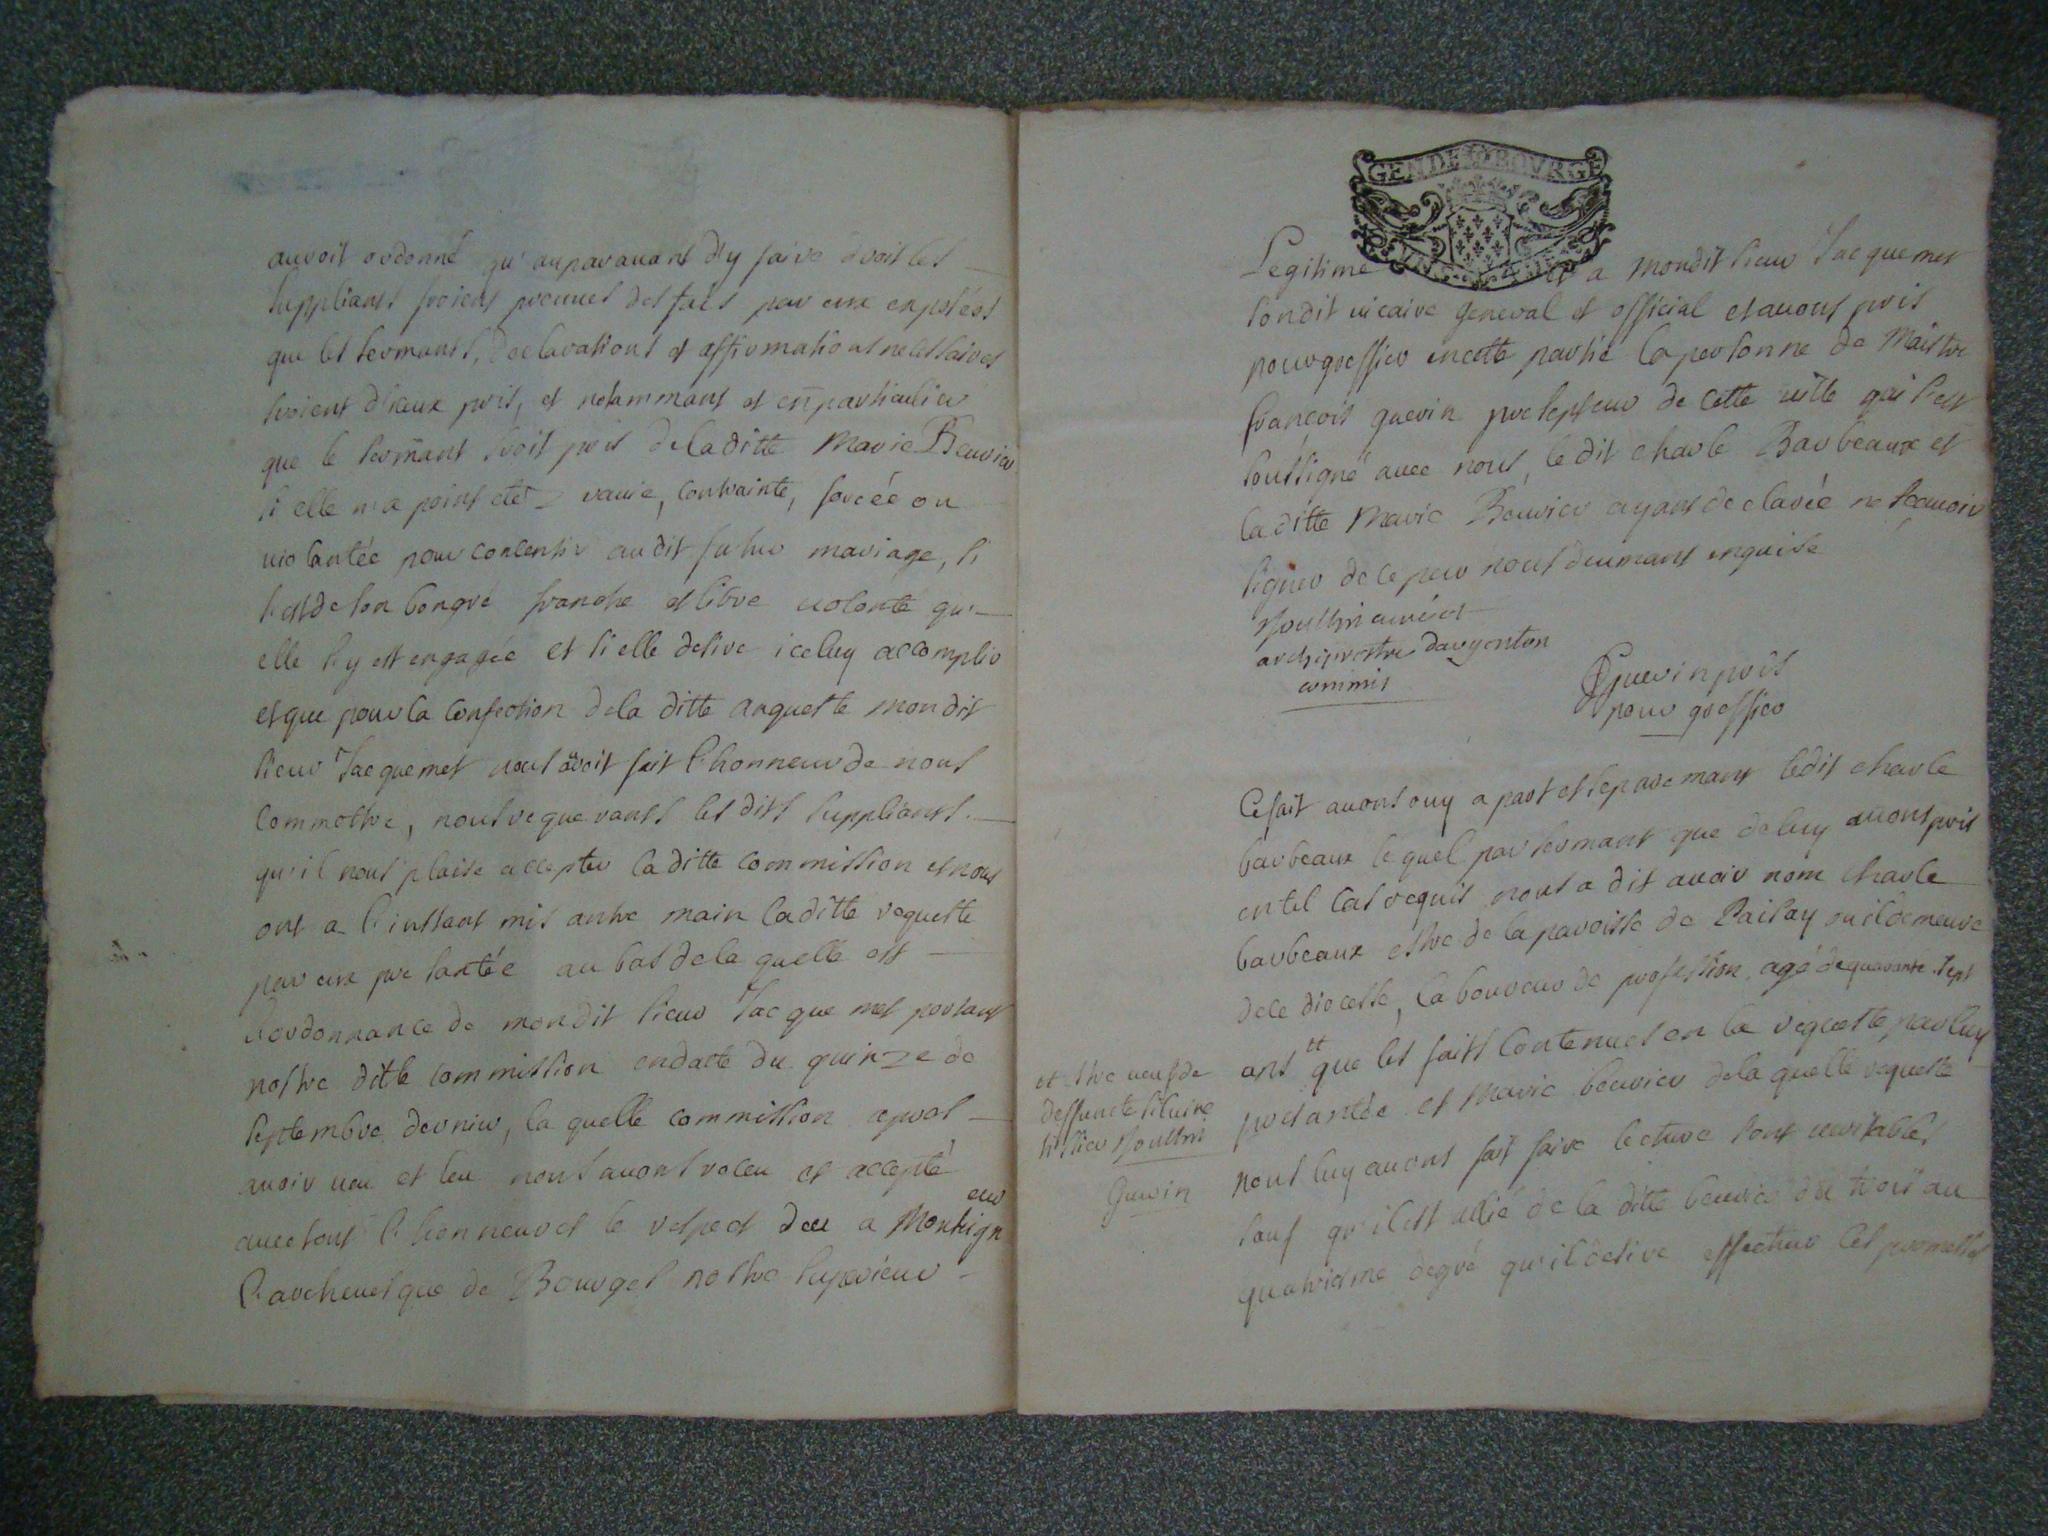 auroit ordonné qu'auparavant d'y faire droit les
suppliants feroient preuves des faits par eux exposées
que les sermants, declarations et affirmations necessaires
seroient d'iceux pris, et notammant et en particulier
que le sermant seroit pris de laditte Marie Beuvier
si elle n'a point eté ravie, contrainte, forcée ou
violantée pour consentir audit futur mariage, si
s'est de son bongré franche et libre volonté qu'
elle s'y est engagée et si elle desire iceluy accomplir
et que pour la confection de la ditte anqueste mondit
sieur Jacquemet nous avoit fait l'honneur de nous
commettre, nous requerants les dits suppliants
qu'il nous plaise accepter laditte commission et nous
ont a l'instant mis antre main laditte requeste
par eux presantée au bas de la quelle est
l'ordonnance de mondit sieur Jacquemet portant
nostre ditte commission en datte du quinze de
septembre dernier, la quelle commission apres
avoir veu et leu nous avons receu et accepté
avec tout l'honneur et le respect deu a Monseign eur
l'archevesque de Bourges nostre superieur
GEN DE BOVRGE
Legitime et a mondit sieur Jacquemet
sondit vicaire general et official et avons pris
pour greffier en cette partie la personne de Maistre
françois guerin precepteur de cette ville qui s'est
soussigné avec nous, le dit charle Barbeaux et
laditte Marie Beuvier ayans declarée ne sçauoir
signer de ce par nous deumant enquise
Moulin curé et
archiprestre dargenton
commis
Guerin pris
pour greffier
Ce fait avons ouy a part et separemant ledit charle
barbeaux lequel par sermant que de luy avons pris
en tel cas requis nous a dit avoir nom charle
barbeaux estre de la paroisse de Paisay ou il demeure
de ce diocesse, laboureur de profession, agé de quarante sept
ans tt que les faits contenues en la requeste par luy
presantée et Marie beuvier de la quelle requeste
nous luy avons fait faire lecture sont veritables
sauf qu'il est allié de la ditte beuvier du trois au
quatriesme degré qu'il desire effectuer les promesses
et estre veuf de
deffuncte silvine
Moulin
Guerin